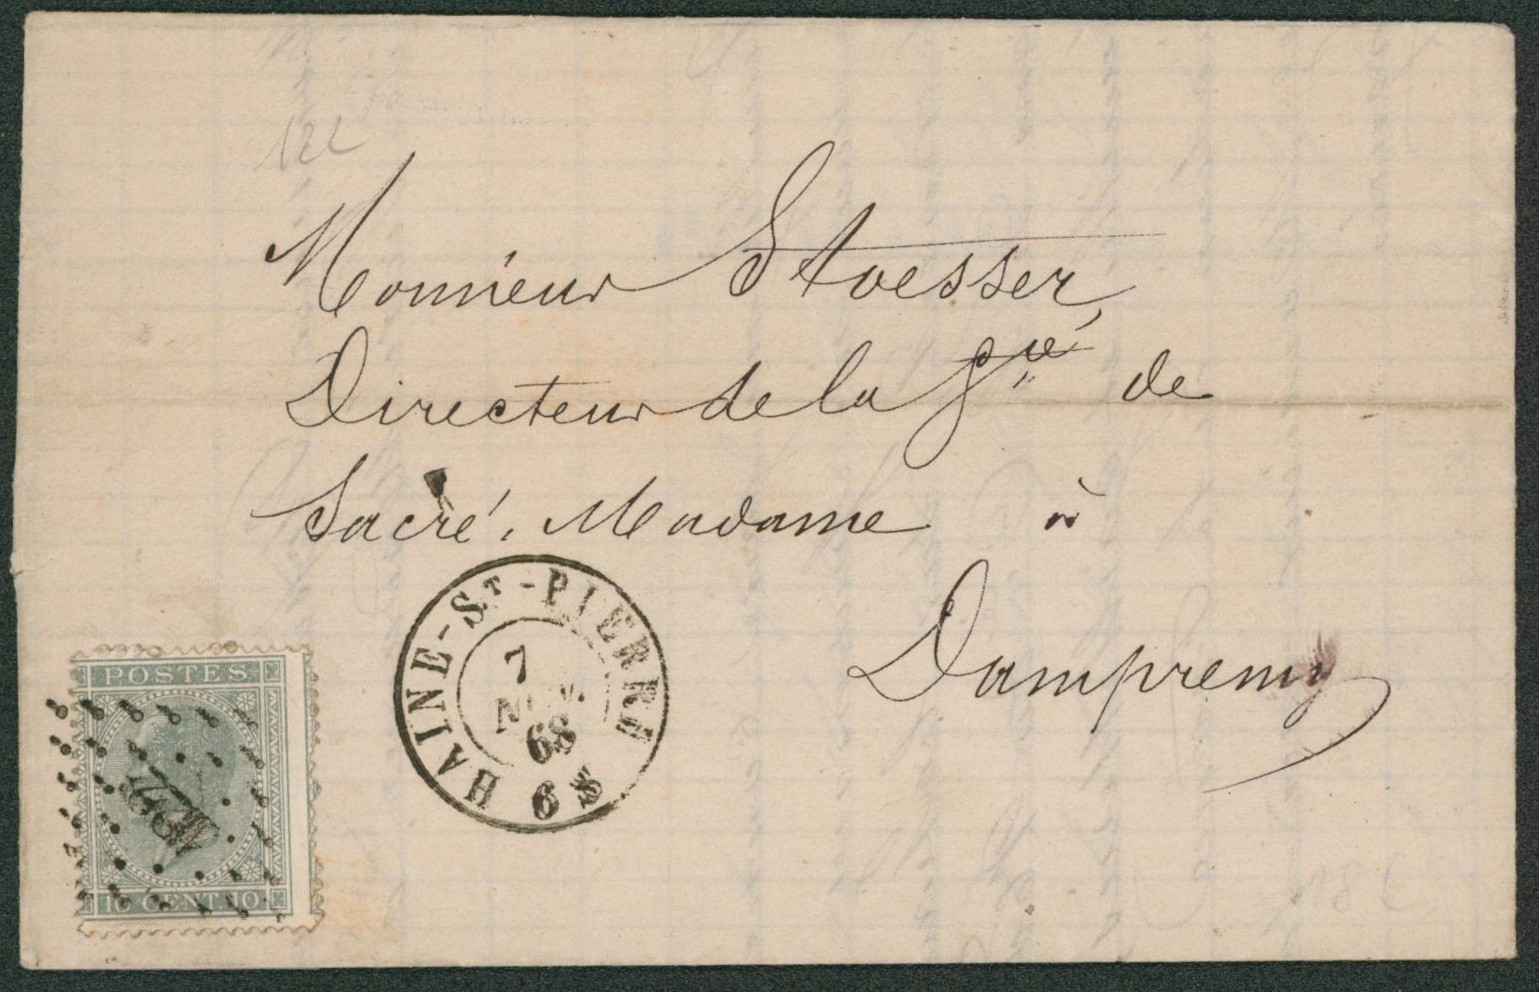 122
Monsieur Stoesser,
Directeur de la Sté de
Sacré. Madame à
Dampremy
HAINE-ST-PIERRE
7
NOV.
68
6 S
POSTES
10 CENT. 10